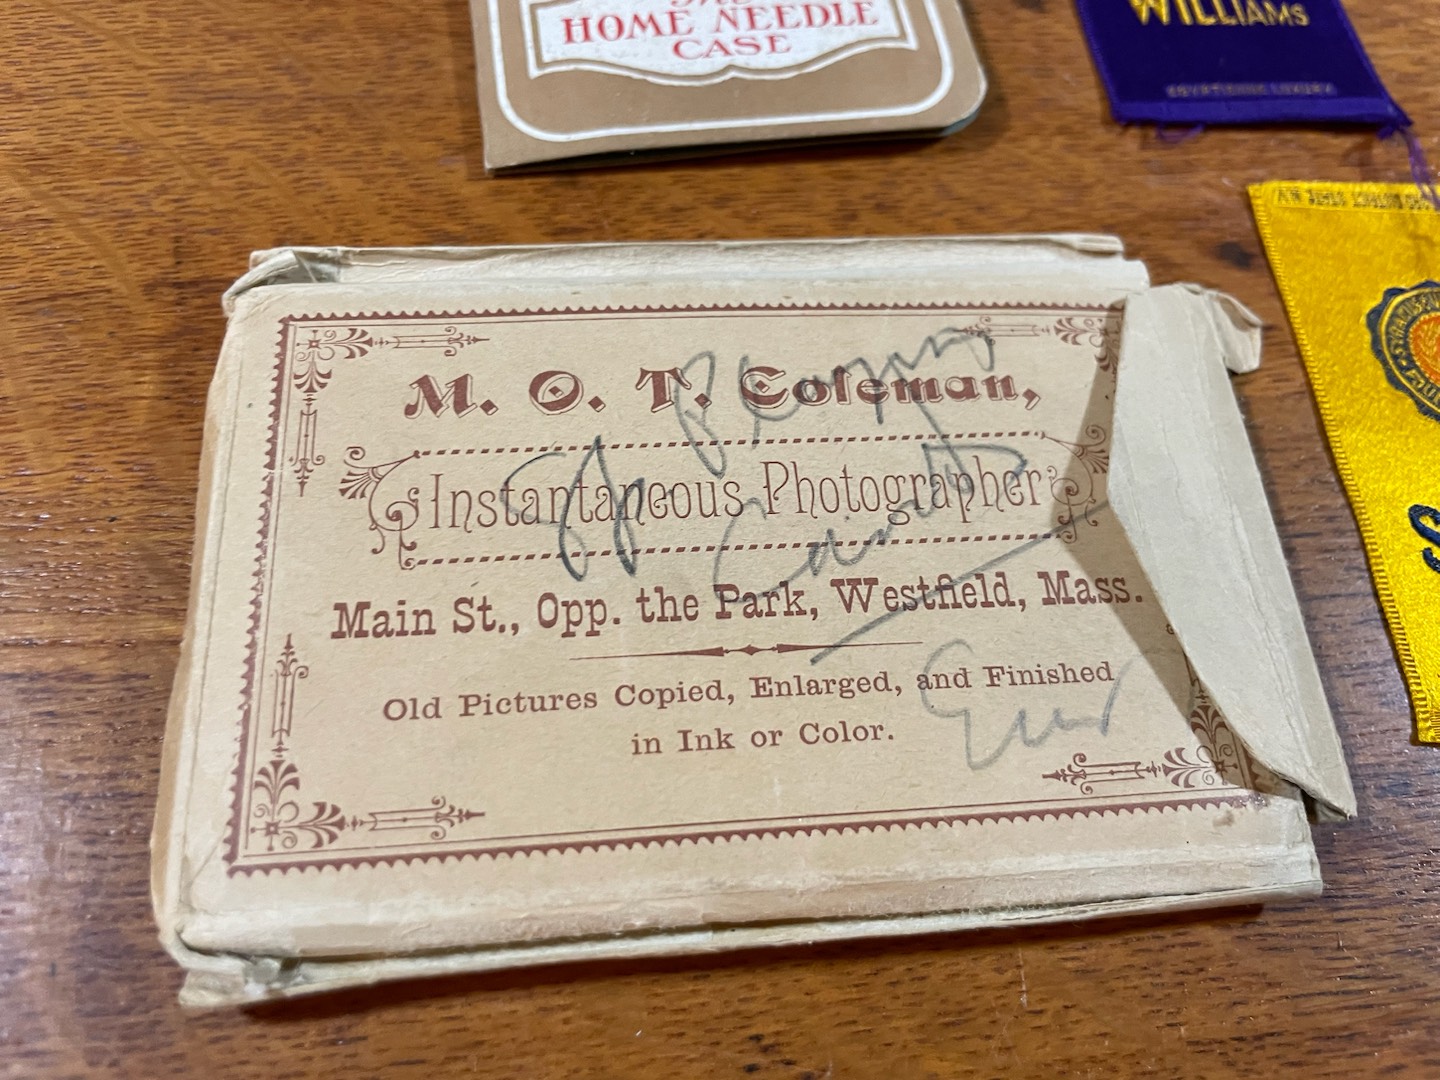 HOME NEEDLE
CASE
WILLIAMS
EGYPTIENNE LUXURY
M. O. T. Coleman,
Instantaneous Photographer
Main St., Opp. the Park, Westfield, Mass.
Old Pictures Copied, Enlarged, and Finished
in Ink or Color.